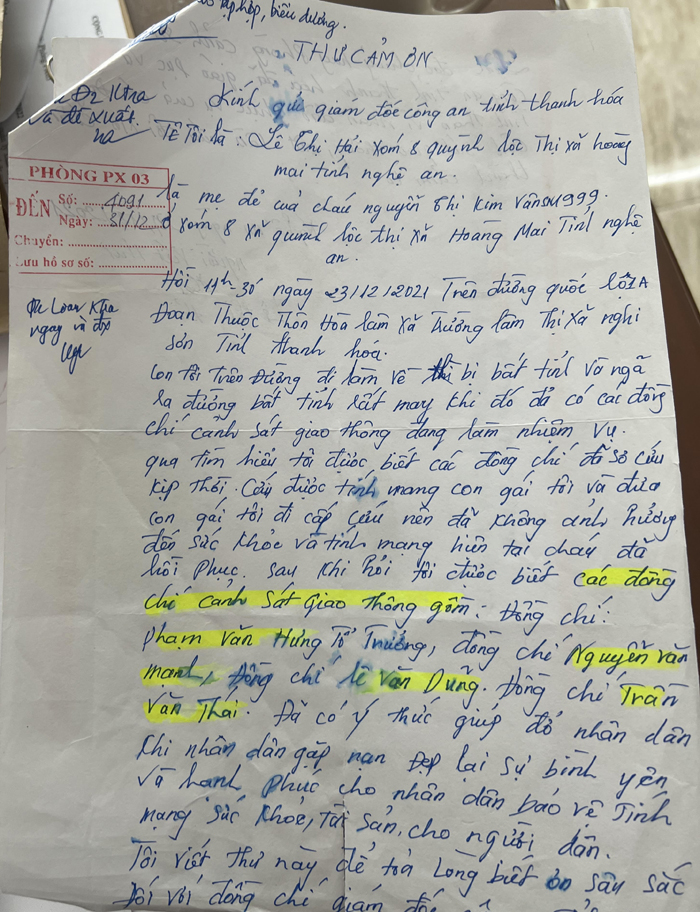 tập hợp, biểu dương.
THƯ CẢM ƠN
Đ2 Ktra
và đề xuất.
Kính gửi giám đốc công an tỉnh thanh hóa
Tê Tôi là: Lê Thị Hải xóm 8 quỳnh lộc Thị xã hoàng
mai tỉnh nghệ an.
PHÒNG PX 03
ĐẾN
Số: 4091
Ngày: 31/12
Chuyển:
Lưu hồ sơ số:
là mẹ đẻ cuả cháu nguyễn Thị Kim Vân SN 1999.
ở xóm 8 xã quỳnh lộc thị xã Hoàng Mai Tỉnh nghệ
an.
Hồi 11h-30 ngày 23/12/2021 Trên đường quốc lộ 1A
Đoạn Thuộc Thôn Hòa lâm xã Trường lâm Thị xã nghi
sơn Tỉnh thanh hóa.
con tôi Trên Đường đi làm về thì bị bất tỉnh và ngã
ra đường bất tỉnh rất may khi đó đã có các đồng
chí cảnh sát giao thông đang làm nhiệm vụ.
qua tìm hiểu tôi được biết các đồng chí đã sơ cứu
kịp thời. Cứu được tính mạng con gái tôi và đưa
con gái tôi đi cấp cứu nên đã không ảnh hưởng
đến sức khỏe và tính mạng hiện tại cháu đã
hồi phục. sau khi hỏi tôi được biết các đồng
chí cảnh sát Giao thông gồm: Đồng chí:
phạm Văn Hưng Tổ Trưởng, đồng chí Nguyễn văn
mạnh, Đồng chí lê Văn Dũng. Đồng chí Trần
Văn Thái. Đã có ý thức giúp đỡ nhân dân
khi nhân dân gặp nạn Đẹp lại sự bình yên
và hạnh phúc cho nhân dân bảo vệ Tính
mạng sức khỏe, Tài sản, cho người dân.
Tôi viết thư này để tỏ lòng biết ơn sâu sắc
đối với đồng chí giám đốc